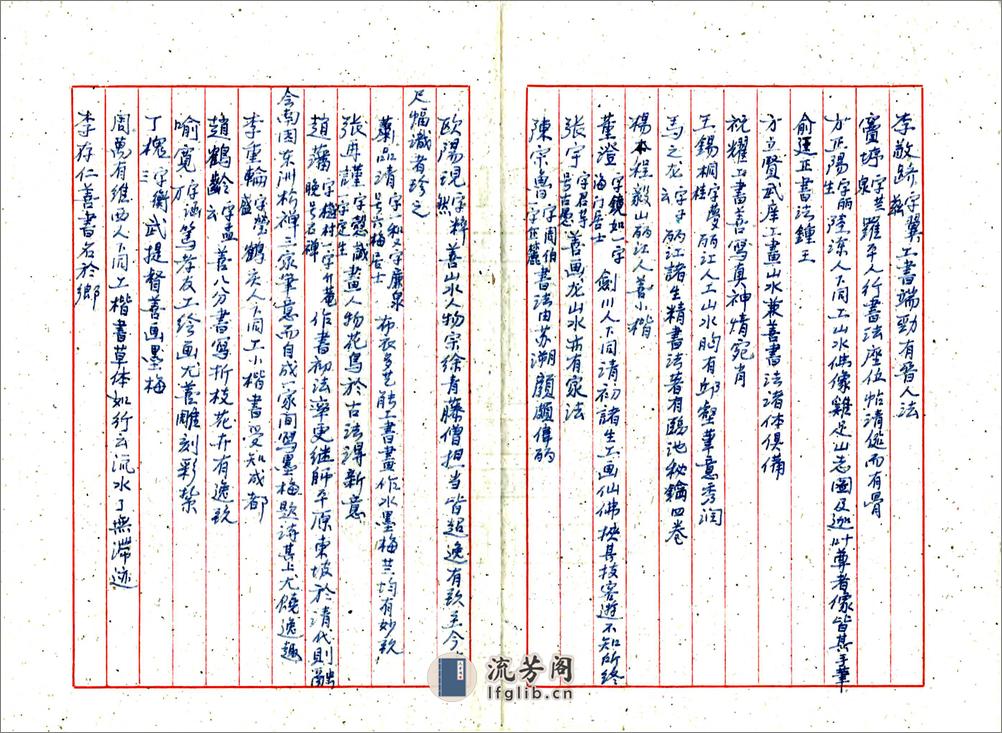 李敬跻字翼兹工書端勁有晉人法
竇垿字兰泉羅平人行書法座位帖清俊而有骨
方正陽字丽生陸凉人下同工山水佛像雞足山志圖及迦叶尊者像皆其手筆
俞運正書法鍾王
方立賢武庠工畫山水兼善書法诸体俱備
祝耀工書善寫真神情宛肖
王錫桐字慶桂丽江人工山水胸有邱壑筆意秀润
馬之龙字子云丽江諸生精書法著有臨池秘鑰四卷
楊本程毅山丽江人善小楷
董澄字鏡如一字海门居士劍川人下同清初諸生工画仙佛挾其技客遊不知所终
張宇字君草号古愚善画龙山水亦有家法
陳宗魯字周伯一字伯麓書法由苏溯顔頗偉丽
欧陽現字粹然善山水人物宗徐青藤僧担当皆超逸有致至今
尺幅識者珍之
蕭品清字一和又字廉泉号六梅居士布衣多艺能工書畫作水墨梅共均有妙致
張再謹字慇誠一字定生畫人物花鳥於古法得新意
趙藩字樾村一字介菴晚号石禪作書初法率更继師平原東坡於清代則融
会南园东洲松禅三家筆意而自成一家间寫墨梅題诗其上尤饒逸趣
李重輪字瑩盛鶴庆人下同工小楷書受知成都
趙鶴齡字孟云善八分書寫折枝花亦有逸致
喻寬字涵万篤孝友工绘画尤善雕刻彩紮
丁槐字衡三武提督善画墨梅
周萬有維西人下同工楷書草体如行云流水了無滯迹
李存仁善書名於鄉
流芳阁
lfglib.cn